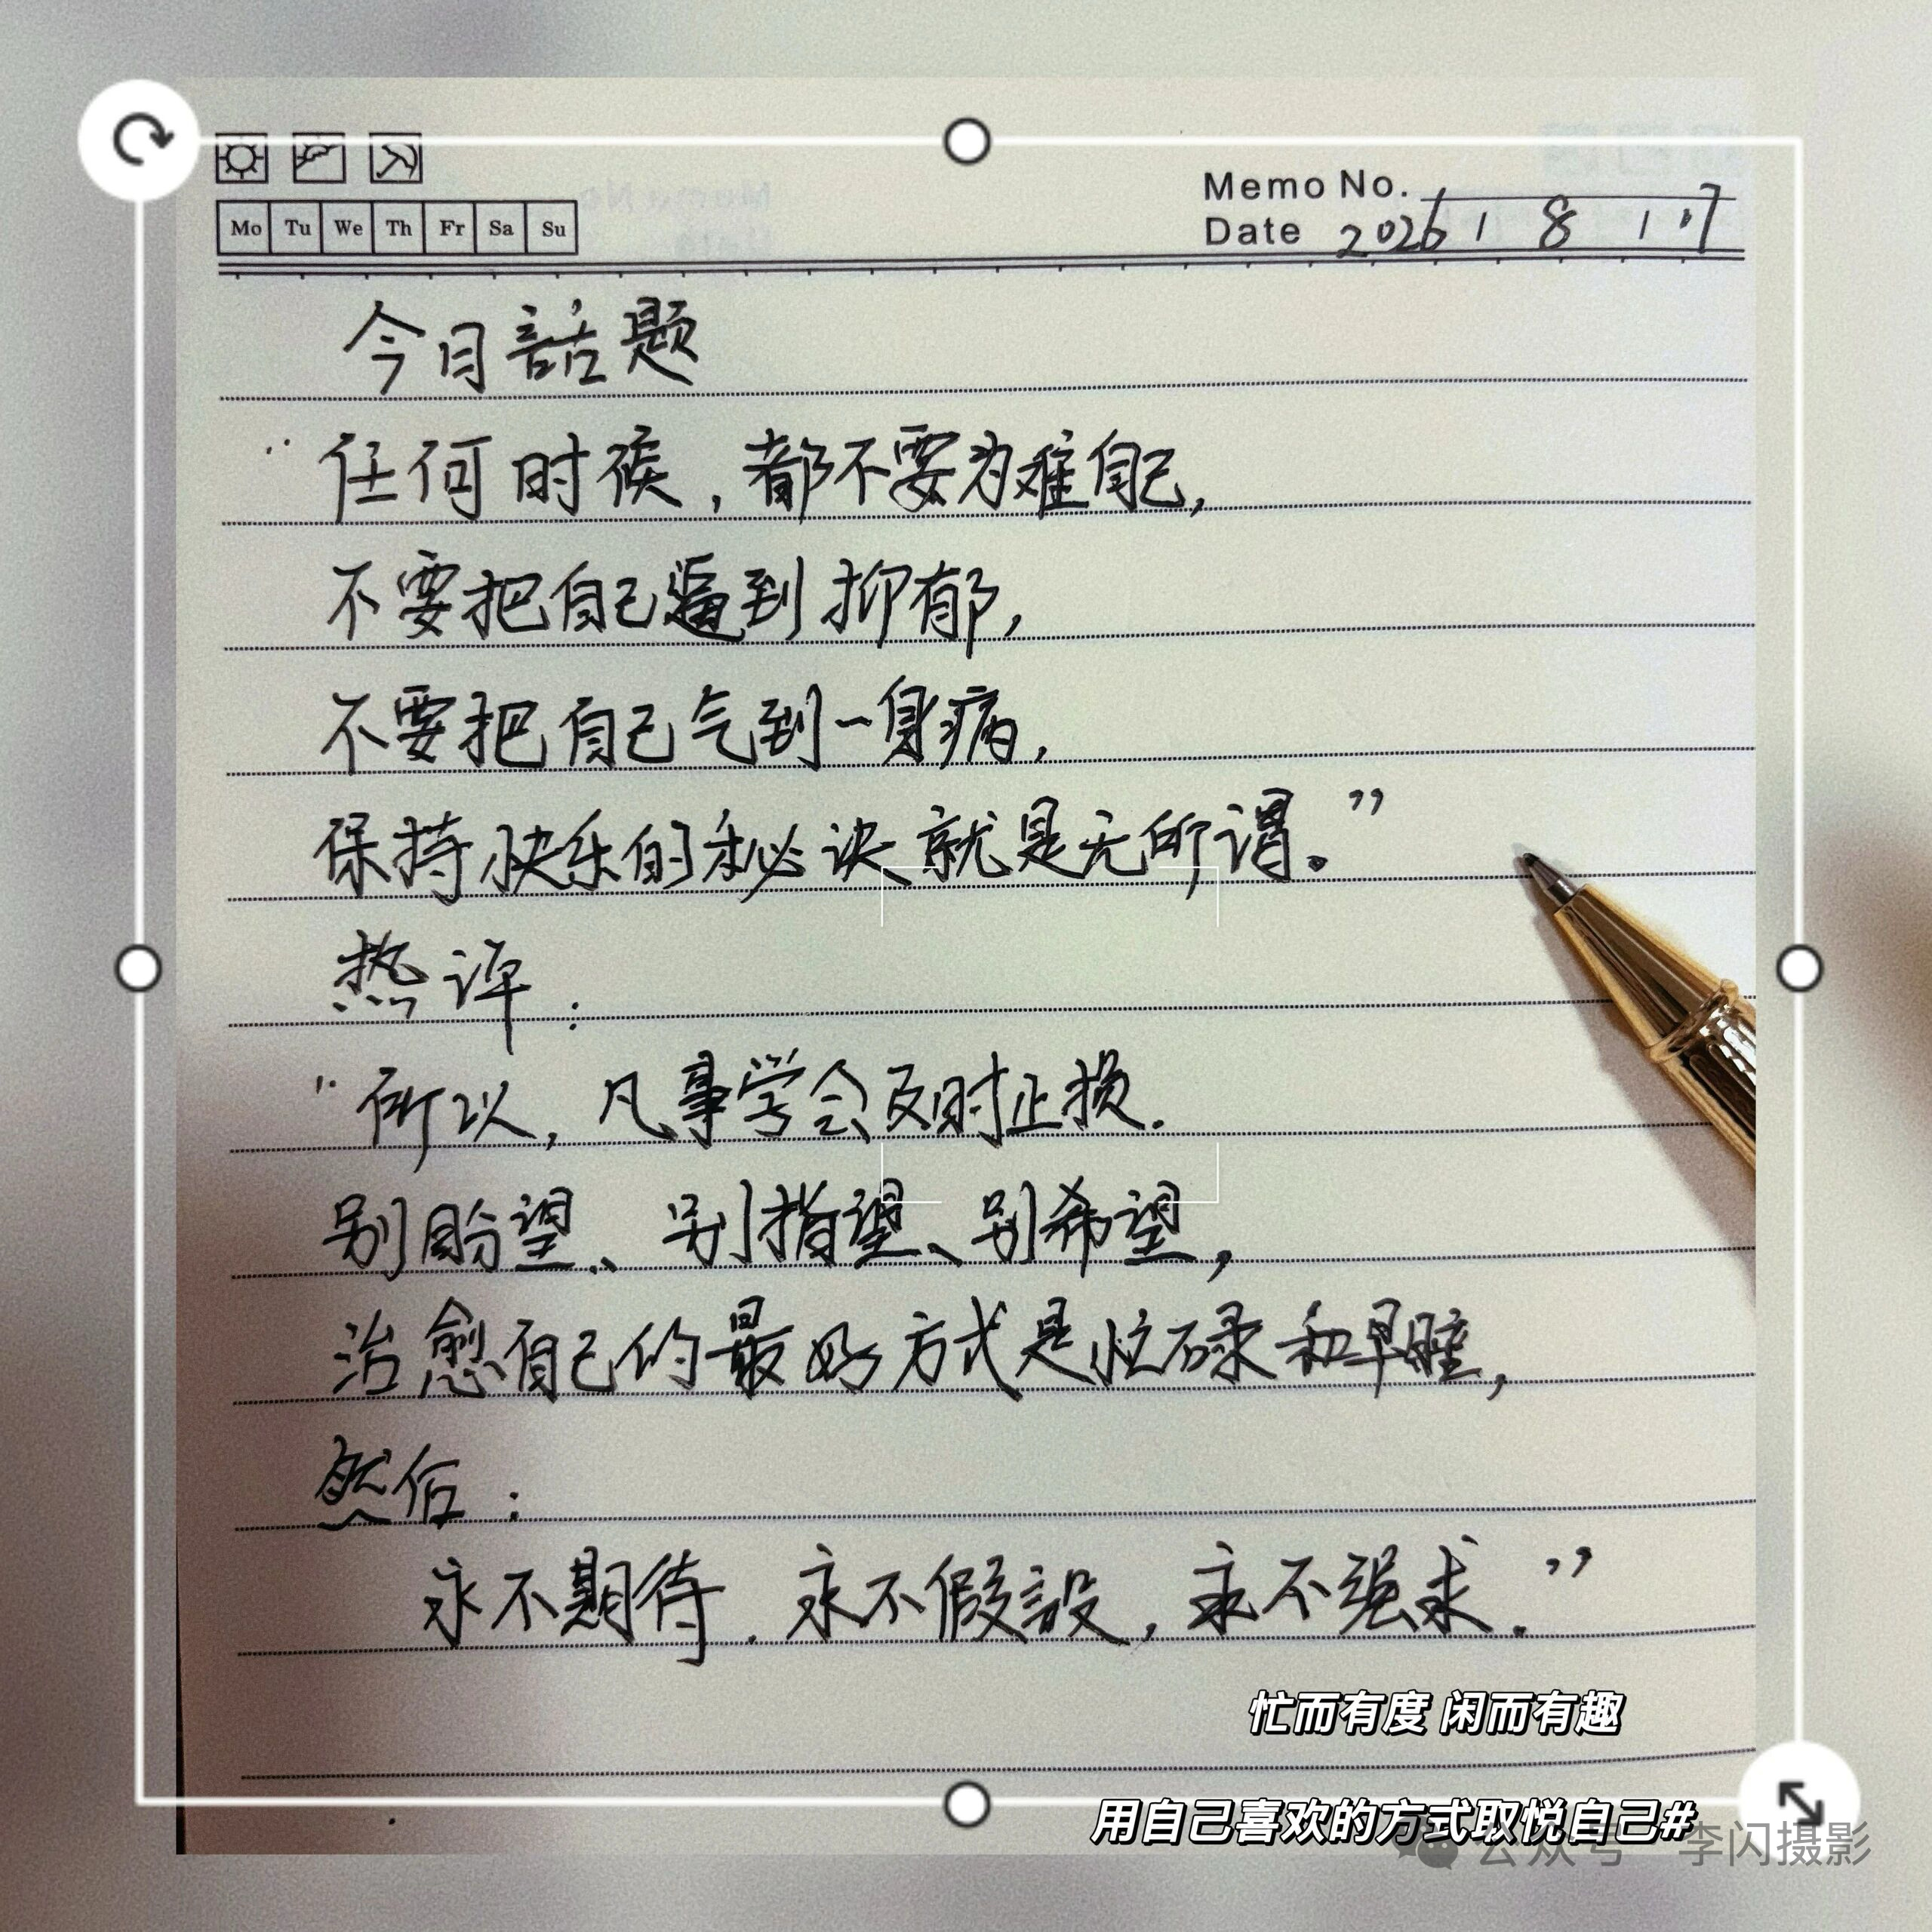 Mo Tu We Th Fr Sa Su
Memo No.
Date 2026 1 8 1 17
今日話题
“任何时候，都不要为难自己，
不要把自己逼到抑郁，
不要把自己气到一身病，
保持快乐的秘诀就是无所谓。”
热评：
“所以，凡事学会及时止损.
别盼望、别指望、别希望，
治愈自己的最好方式是忙碌和早睡，
然后：
永不期待，永不假設，永不强求.”
忙而有度 闲而有趣
用自己喜欢的方式取悦自己#
公众号 李闪摄影